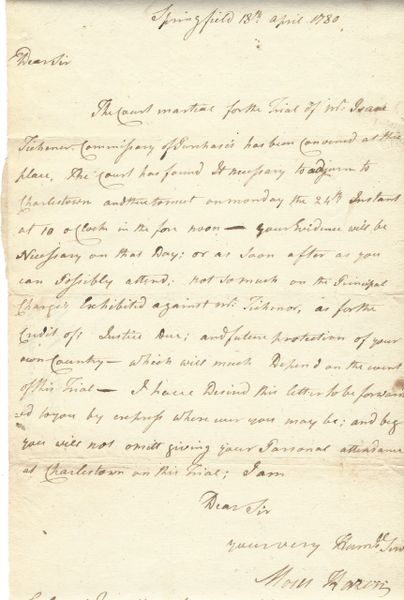 Springfield 18th April 1780
Dear Sir
The Court martial for the Trial of Mr. Isaac
Tichenor Commissary of Purchases has been Convened at this
place, The Court has found It necessary to adjurn to
Charlestown and there to meet on monday the 24th Instant
at 10 o Clock in the fore noon — your Evidence will be
Necessary on that Day; or as Soon after as you
can Possibly attend; not so much on the Principal
Charges Exhibited against Mr. Tichenor, as for the
Credit of; Justice Due; and future protection of your
own Country — which will much Depend on the event
of this Trial — I have Desired this letter to be forward
=ed to you by express where ever you may be; and beg
you will not omitt giving your Parsonal attendance
at Charlestown on this Trial; I am
Dear Sir
your very Humble Serv
Moses Hazen